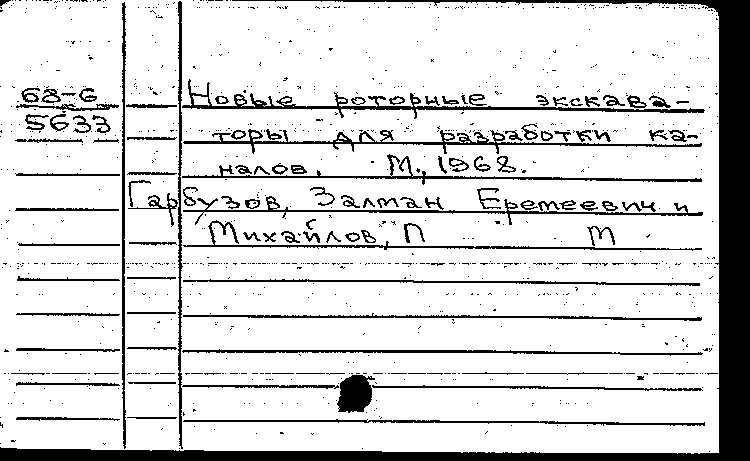 68-6
5633
Новые роторные экскава-
торы для разработки ка-
налов. М., 1968.
Гарбузов, Залман Еремеевич и
Михайлов, П М